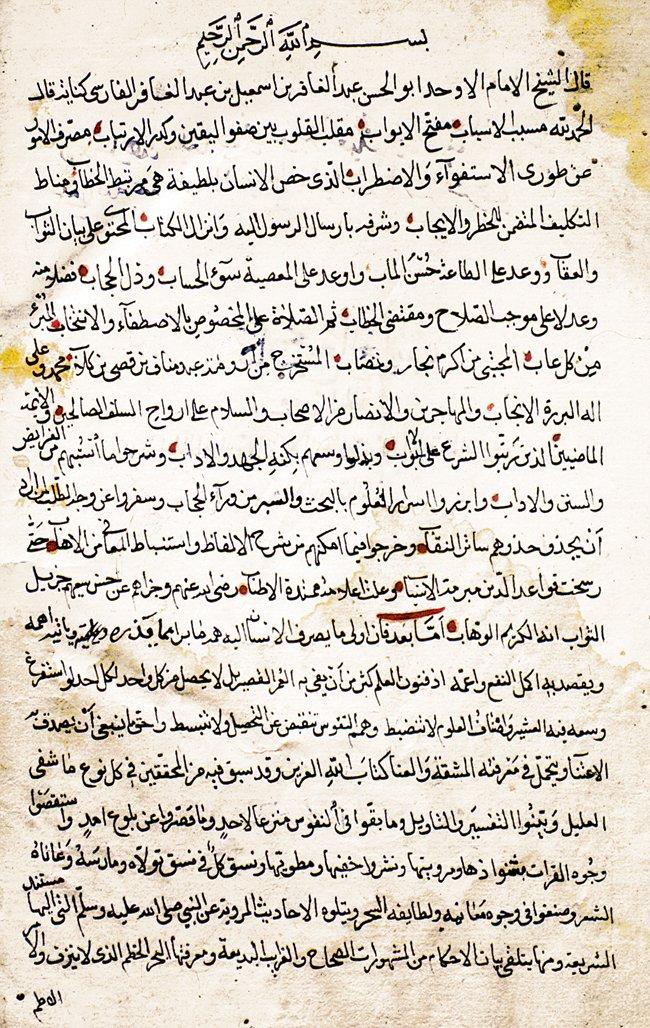 بسم الله الرحمن الرحيم
قال الشيخ الامام الاوحد ابو الحسن عبد الغافر بن اسمعيل بن عبد الغافر الفارسى كتابة قال
الحمد لله مسبب الاسباب مفتح الابواب مقلب القلوب بين صفو اليقين وكدر الارتياب مصرف الامور
عن طورى الاستقوآء والاضطراب الذى خص الانسان بلطيفة هى مرتبط الخطاب ومناط
التكليف المتضمن للحظر والايجاب وشرفه بارسال الرسول اليه وانزل الكتاب المحتوى على بيان الثواب
والعقاب ووعد على الطاعة حسن الماب واوعد على المعصية سوء الحساب وذل الحجاب فضلا منه
وعدلا على موجب الصلاح ومقتضى الخطاب ثم الصلاة على المخصوص بالاصطفآء والانتخاب المبرئ
من كل عاب المجتبى من اكرم نجار ونصاب المستخرج من ارومة عبد مناف بن قصى بن كلاب محمد وعلى
اله البررة الانجاب والمهاجرين والانصار من الاصحاب والسلام على ارواح السلف الصالحين والائمة
الماضيين الذين رتبوا الشرع على الابواب وبذلوا وسعهم بكنه الجهد والاداب وشرحوا ما من الفرايض
والسنن والاداب وابرزوا اسرار العلوم بالبحث والسبر من ورآء الحجاب وسفروا عن وجه الطلب لمن اراد
ان يحذو حذوهم ساتر النقاب وخرجوا فيما امكنهم من شرح الالفاظ واستنباط المعانى من الاهاب حتى
رسخت قواعد الدين مبرمة الاسباب وعلت اعلامه ممتدة الاطناب رضى الله عنهم وجزاهم عن حسن سعيهم جزيل
الثواب انه الكريم الوهاب امّا بعد فان اولى ما يصرف الانسان اليه همه
ويقصد به اكمل النفع واعمه اذ فنون العلم اكثر من ان يفى به العمر القصير بل لا يحصل من كل واحد لكل احد لو استفرغ
وسعه فيه العشير واصناف العلوم لا تنضبط وهمم النفوس تنقبض عن التحصيل ولا تنبسط واحق ما ينبغى ان يصدق به
الاعتنا ويتحمل فى معرفته المشقة والعنا كتاب الله العزيز وقد سبق فيه من المحققين فى كل نوع ما شفى
العليل وبينوا التفسير والتاويل وما بقوا فى النفوس منزعا لاحد وما قصروا عن بلوغ امد واستقصوا
وجوه القرات ونشروا خفيها ومطويها ونسق كل فى نسق تولاه ومارسه وعاناه
الشعر وصنفوا فى وجوه معانيه ولطايفه ويتلوه الاحاديث المروية عن النبى صلى الله عليه وسلم التى اليها مستند
الشريعة ومنها يتلقى بيان الاحكام من المشهورات الصحاح والغرايب البديعة ومعرفتها البحر الخضم الذى لا ينزف